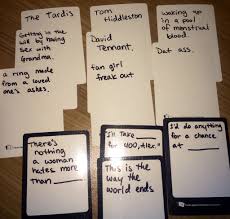 The Tardis
Getting in the
will by having
sex with
Grandma.
a ring made
from a loved
one's ashes.
Tom
Hiddleston
David
Tennant,
fan girl
freak out
waking up
in a pool
of menstrual
blood.
Dat ass.
There's
nothing
a woman
hates more
than
I'll Take
for 400, Alex."
This is the
way the
world ends
I'd do anything
for a chance
at